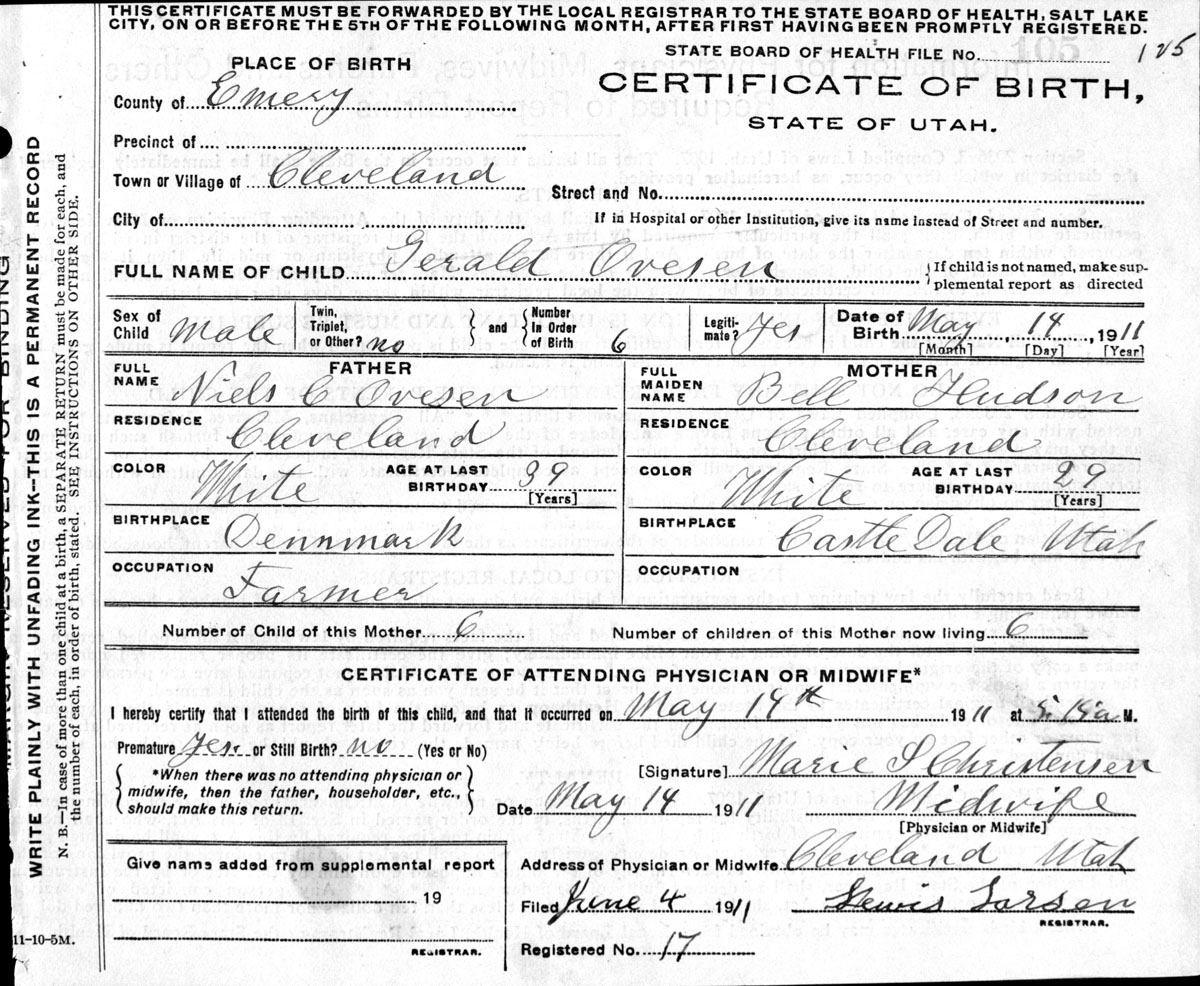 THIS CERTIFICATE MUST BE FORWARDED BY THE LOCAL REGISTRAR TO THE STATE BOARD OF HEALTH, SALT LAKE
CITY, ON OR BEFORE THE 5TH OF THE FOLLOWING MONTH, AFTER FIRST HAVING BEEN PROMPTLY REGISTERED.
STATE BOARD OF HEALTH FILE NO. 105 125
PLACE OF BIRTH
CERTIFICATE OF BIRTH,
County of Emery
STATE OF UTAH.
Precinct of
Town or Village of Cleveland Street and No.
City of If in Hospital or other Institution, give its name instead of Street and number.
FULL NAME OF CHILD Gerald Ovesen {If child is not named, make sup-
plemental report as directed
Sex of Child male Twin, Triplet, or Other? no } and { Number In Order of Birth 6 Legiti-mate? Yes Date of Birth May 14, 1911
[Month] [Day] [Year]
FATHER MOTHER
FULL NAME Niels C Ovesen FULL MAIDEN NAME Bell Hudson
RESIDENCE Cleveland RESIDENCE Cleveland
COLOR White AGE AT LAST BIRTHDAY 39 [Years] COLOR White AGE AT LAST BIRTHDAY 29 [Years]
BIRTHPLACE Dennmark BIRTHPLACE Castle Dale Utah
OCCUPATION Farmer OCCUPATION
Number of Child of this Mother 6 Number of children of this Mother now living 6
CERTIFICATE OF ATTENDING PHYSICIAN OR MIDWIFE*
I hereby certify that I attended the birth of this child, and that it occurred on May 14th 1911 at M.
Premature Yes or Still Birth? no (Yes or No)
{ *When there was no attending physician or
midwife, then the father, householder, etc.,
should make this return. }
[Signature] Marie S Christensen
Date May 14 1911 Midwife
[Physician or Midwife]
Give name added from supplemental report
19
REGISTRAR.
Address of Physician or Midwife Cleveland Utah
Filed June 4 1911 Lewis Larsen
REGISTRAR.
Registered No. 17
11-10-5M.
RESERVED FOR BINDING
WRITE PLAINLY WITH UNFADING INK--THIS IS A PERMANENT RECORD
N. B.--In case of more than one child at a birth, a SEPARATE RETURN must be made for each, and
the number of each, in order of birth, stated. SEE INSTRUCTIONS ON OTHER SIDE.